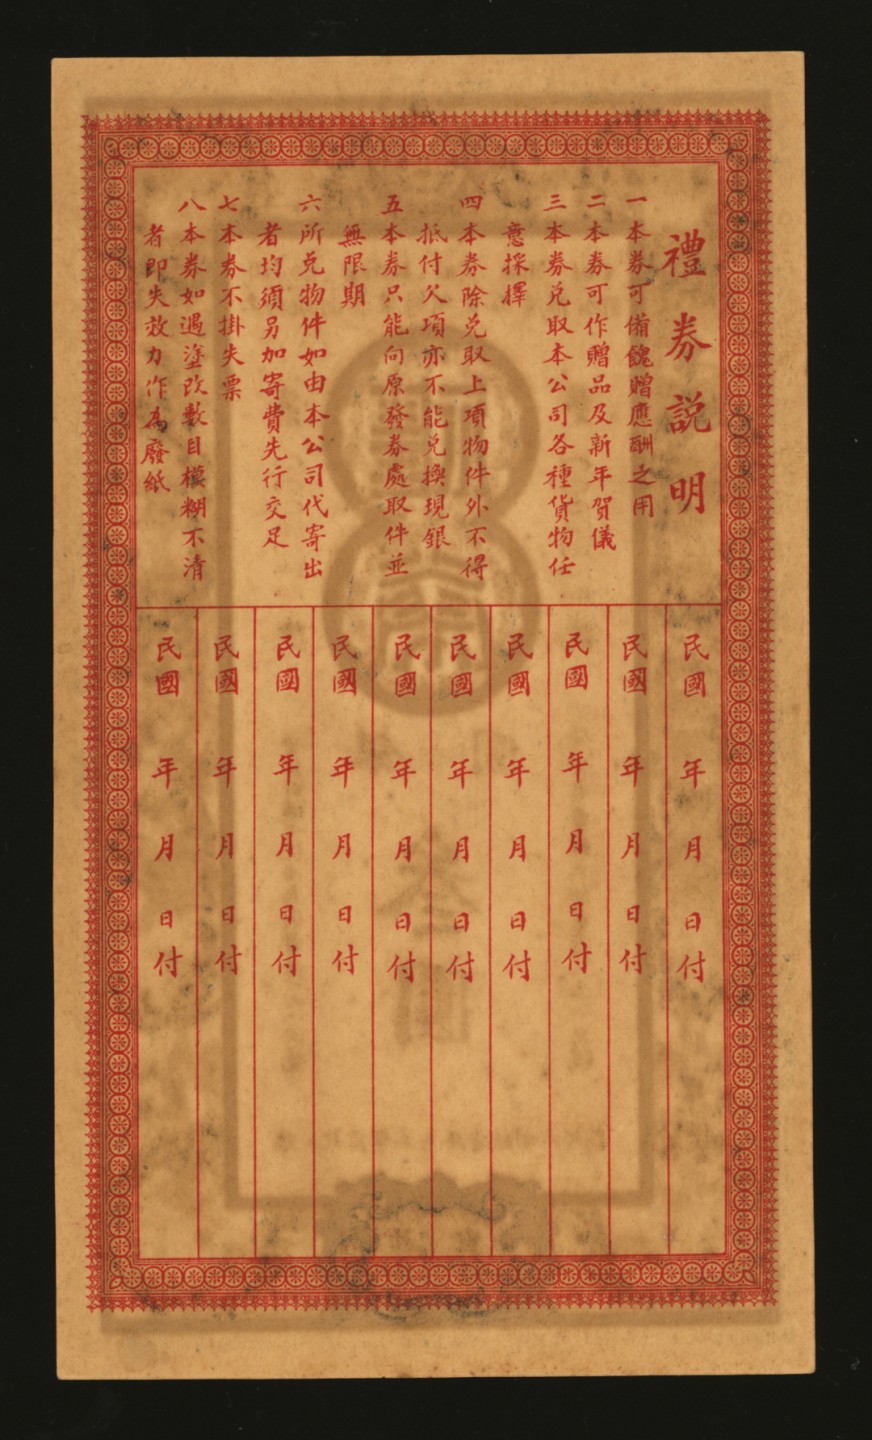 禮券説明
一本券可備餽贈應酬之用
二本券可作贈品及新年賀儀
三本券兑取本公司各種貨物任
意採擇
四本券除兑取上項物件外不得
抵付欠項亦不能兑換現銀
五本券只能向原發券處取件並
無限期
六所兑物件如由本公司代寄出
者均須另加寄費先行交足
七本券不掛失票
八本券如遇塗改數目模糊不清
者即失效力作為廢紙
民國 年 月 日付
民國 年 月 日付
民國 年 月 日付
民國 年 月 日付
民國 年 月 日付
民國 年 月 日付
民國 年 月 日付
民國 年 月 日付
民國 年 月 日付
民國 年 月 日付